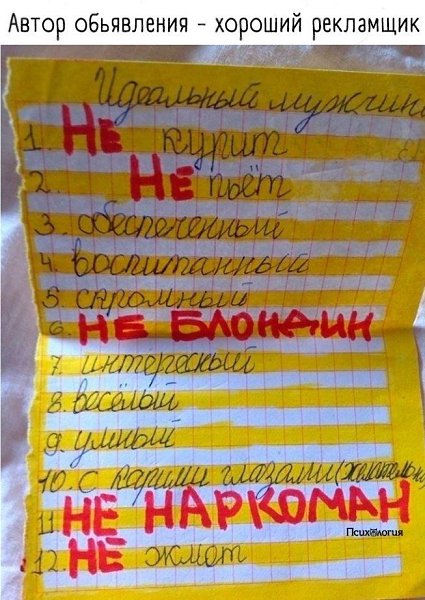 Автор обьявления - хороший рекламщик
Идеальный мужчин
1. НЕ курит
2. НЕ пьёт
3. обеспеченный
4. воспитанный
5 скромный
6. НЕ БЛОНДИН
7. интересный
8. весёлый
9. умный
10. с карими глазами (желательно
11 НЕ НАРКОМАН
Психология
12. НЕ жмот